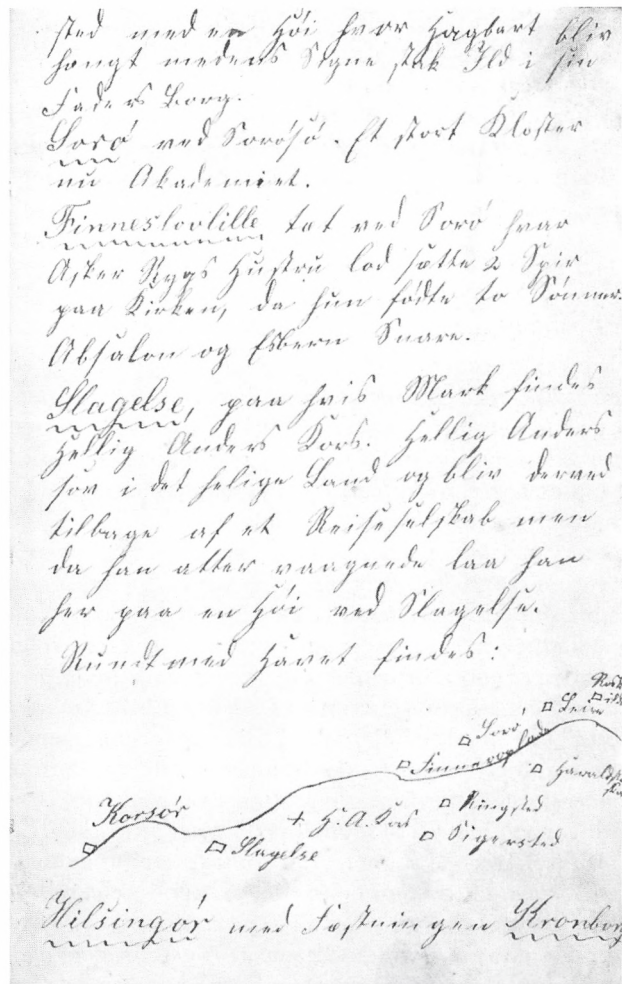 sted med en Høi hvor Hagbart bliv
hængt medens Signe stak Ild i sin
Faders Borg.
Sorø ved Sorøsø. Et stort Kloster
nu Akademiet.
Finneslovlille tæt ved Sorø hvor
Asker Rygs Hustru lod sætte 2 Spir
paa Kirken, da hun fødte to Sønner.
Absalon og Esbern Snare.
Slagelse, paa hvis Mark findes
Hellig Anders Kors. Hellig Anders
sov i det helige Land og bliv derved
tilbage af et Reiseselskab men
da han atter vaagnede laa han
her paa en Høi ved Slagelse.
Rundt med Havet findes:
Leire
Sorø
Harald
Ringsted
Korsør
H. A. Kors
Sigersted
Slagelse
Hilsingør med Fæstningen Kronbor